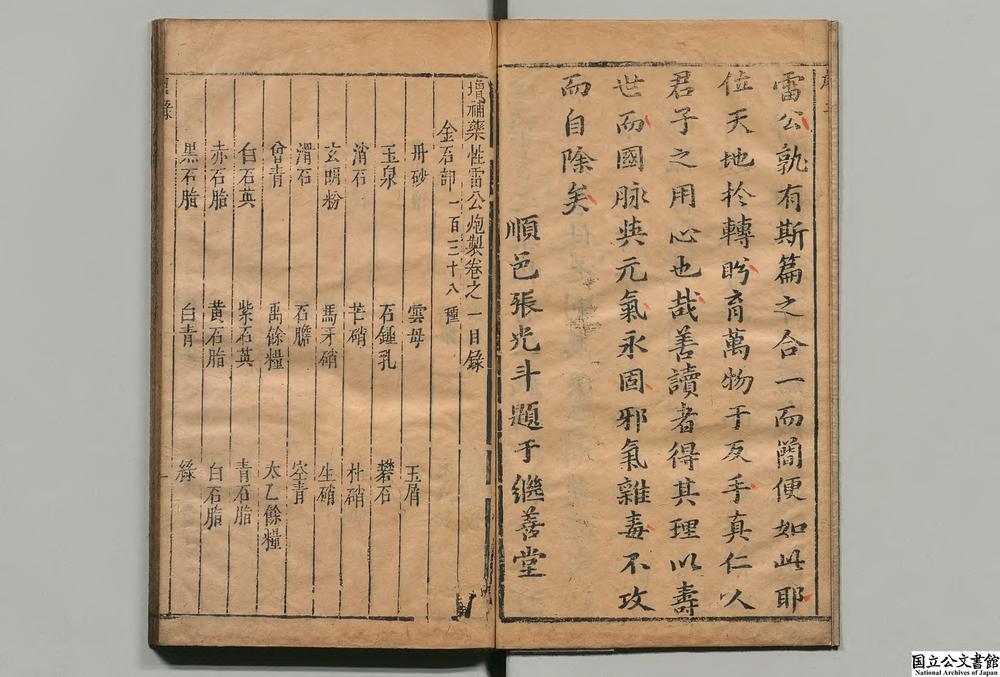 雷公孰有斯篇之合一而簡便如此耶
位天地於轉盻育萬物于反手真仁人
君子之用心也哉善讀者得其理以壽
世而國脉與元氣永固邪氣雜毒不攻
而自除矣
順邑張光斗題于繼善堂
增補藥性雷公炮製卷之一目錄
金石部 一百三十八種
丹砂 雲母 玉屑
玉泉 石鍾乳 礬石
消石 芒硝 朴硝
玄明粉 馬牙硝 生硝
滑石 石膽 空青
曾青 禹餘糧 太乙餘糧
白石英 紫石英 青石脂
赤石脂 黃石脂 白石脂
黑石脂 白青 綠
目錄
一
国立公文書館
National Archives of Japan